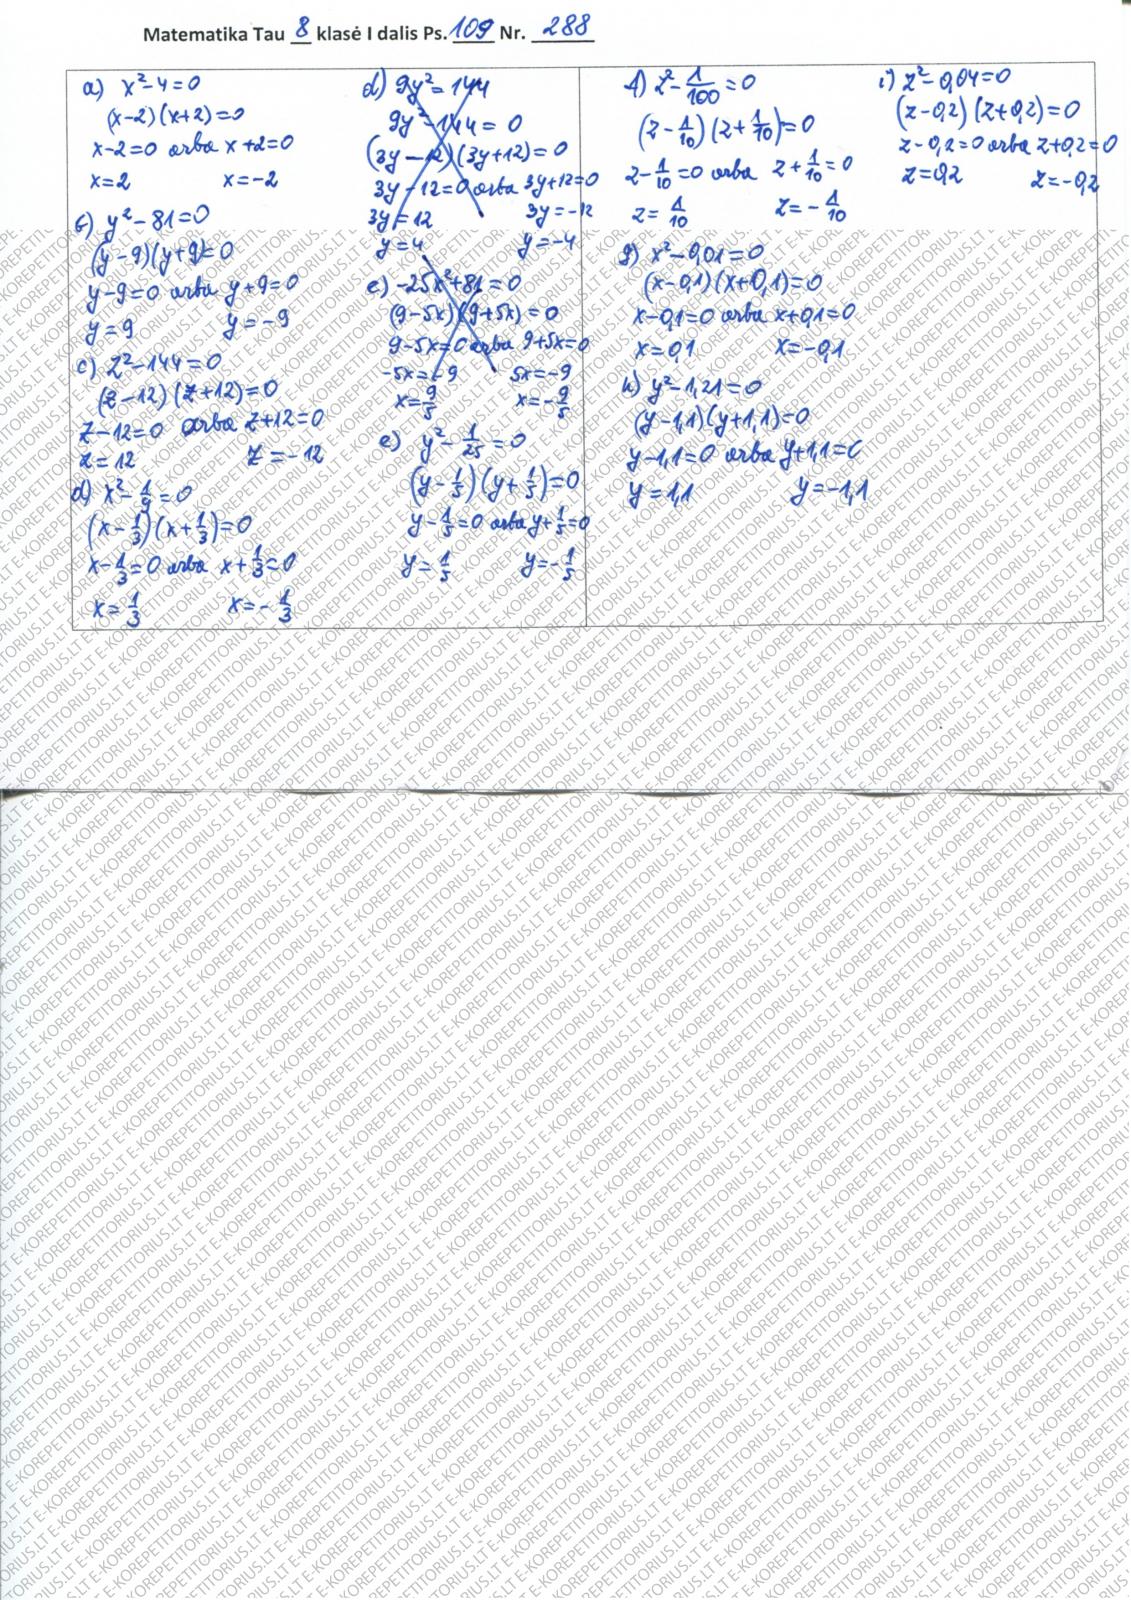 Matematika Tau 8 klasė I dalis Ps. 109 Nr. 288
a) x²-4=0
(x-2)(x+2)=0
x-2=0 arba x+2=0
x=2 x=-2
b) y²-81=0
(y-9)(y+9)=0
y-9=0 arba y+9=0
y=9 y=-9
c) z²-144=0
(z-12)(z+12)=0
z-12=0 arba z+12=0
z=12 z=-12
d) x²-1/9=0
(x-1/3)(x+1/3)=0
x-1/3=0 arba x+1/3=0
x=1/3 x=-1/3
d) 9y²=144
9y²-144=0
(3y-12)(3y+12)=0
3y-12=0 arba 3y+12=0
3y=12 3y=-12
y=4 y=-4
e) -25x²+81=0
(9-5x)(9+5x)=0
9-5x=0 arba 9+5x=0
-5x=-9 5x=-9
x=9/5 x=-9/5
e) y²-1/25=0
(y-1/5)(y+1/5)=0
y-1/5=0 arba y+1/5=0
y=1/5 y=-1/5
f) z²-1/100=0
(z-1/10)(z+1/10)=0
z-1/10=0 arba z+1/10=0
z=1/10 z=-1/10
g) x²-0,01=0
(x-0,1)(x+0,1)=0
x-0,1=0 arba x+0,1=0
x=0,1 x=-0,1
h) y²-1,21=0
(y-1,1)(y+1,1)=0
y-1,1=0 arba y+1,1=0
y=1,1 y=-1,1
i) z²-0,04=0
(z-0,2)(z+0,2)=0
z-0,2=0 arba z+0,2=0
z=0,2 z=-0,2
E-KOREPETITORIUS.LT